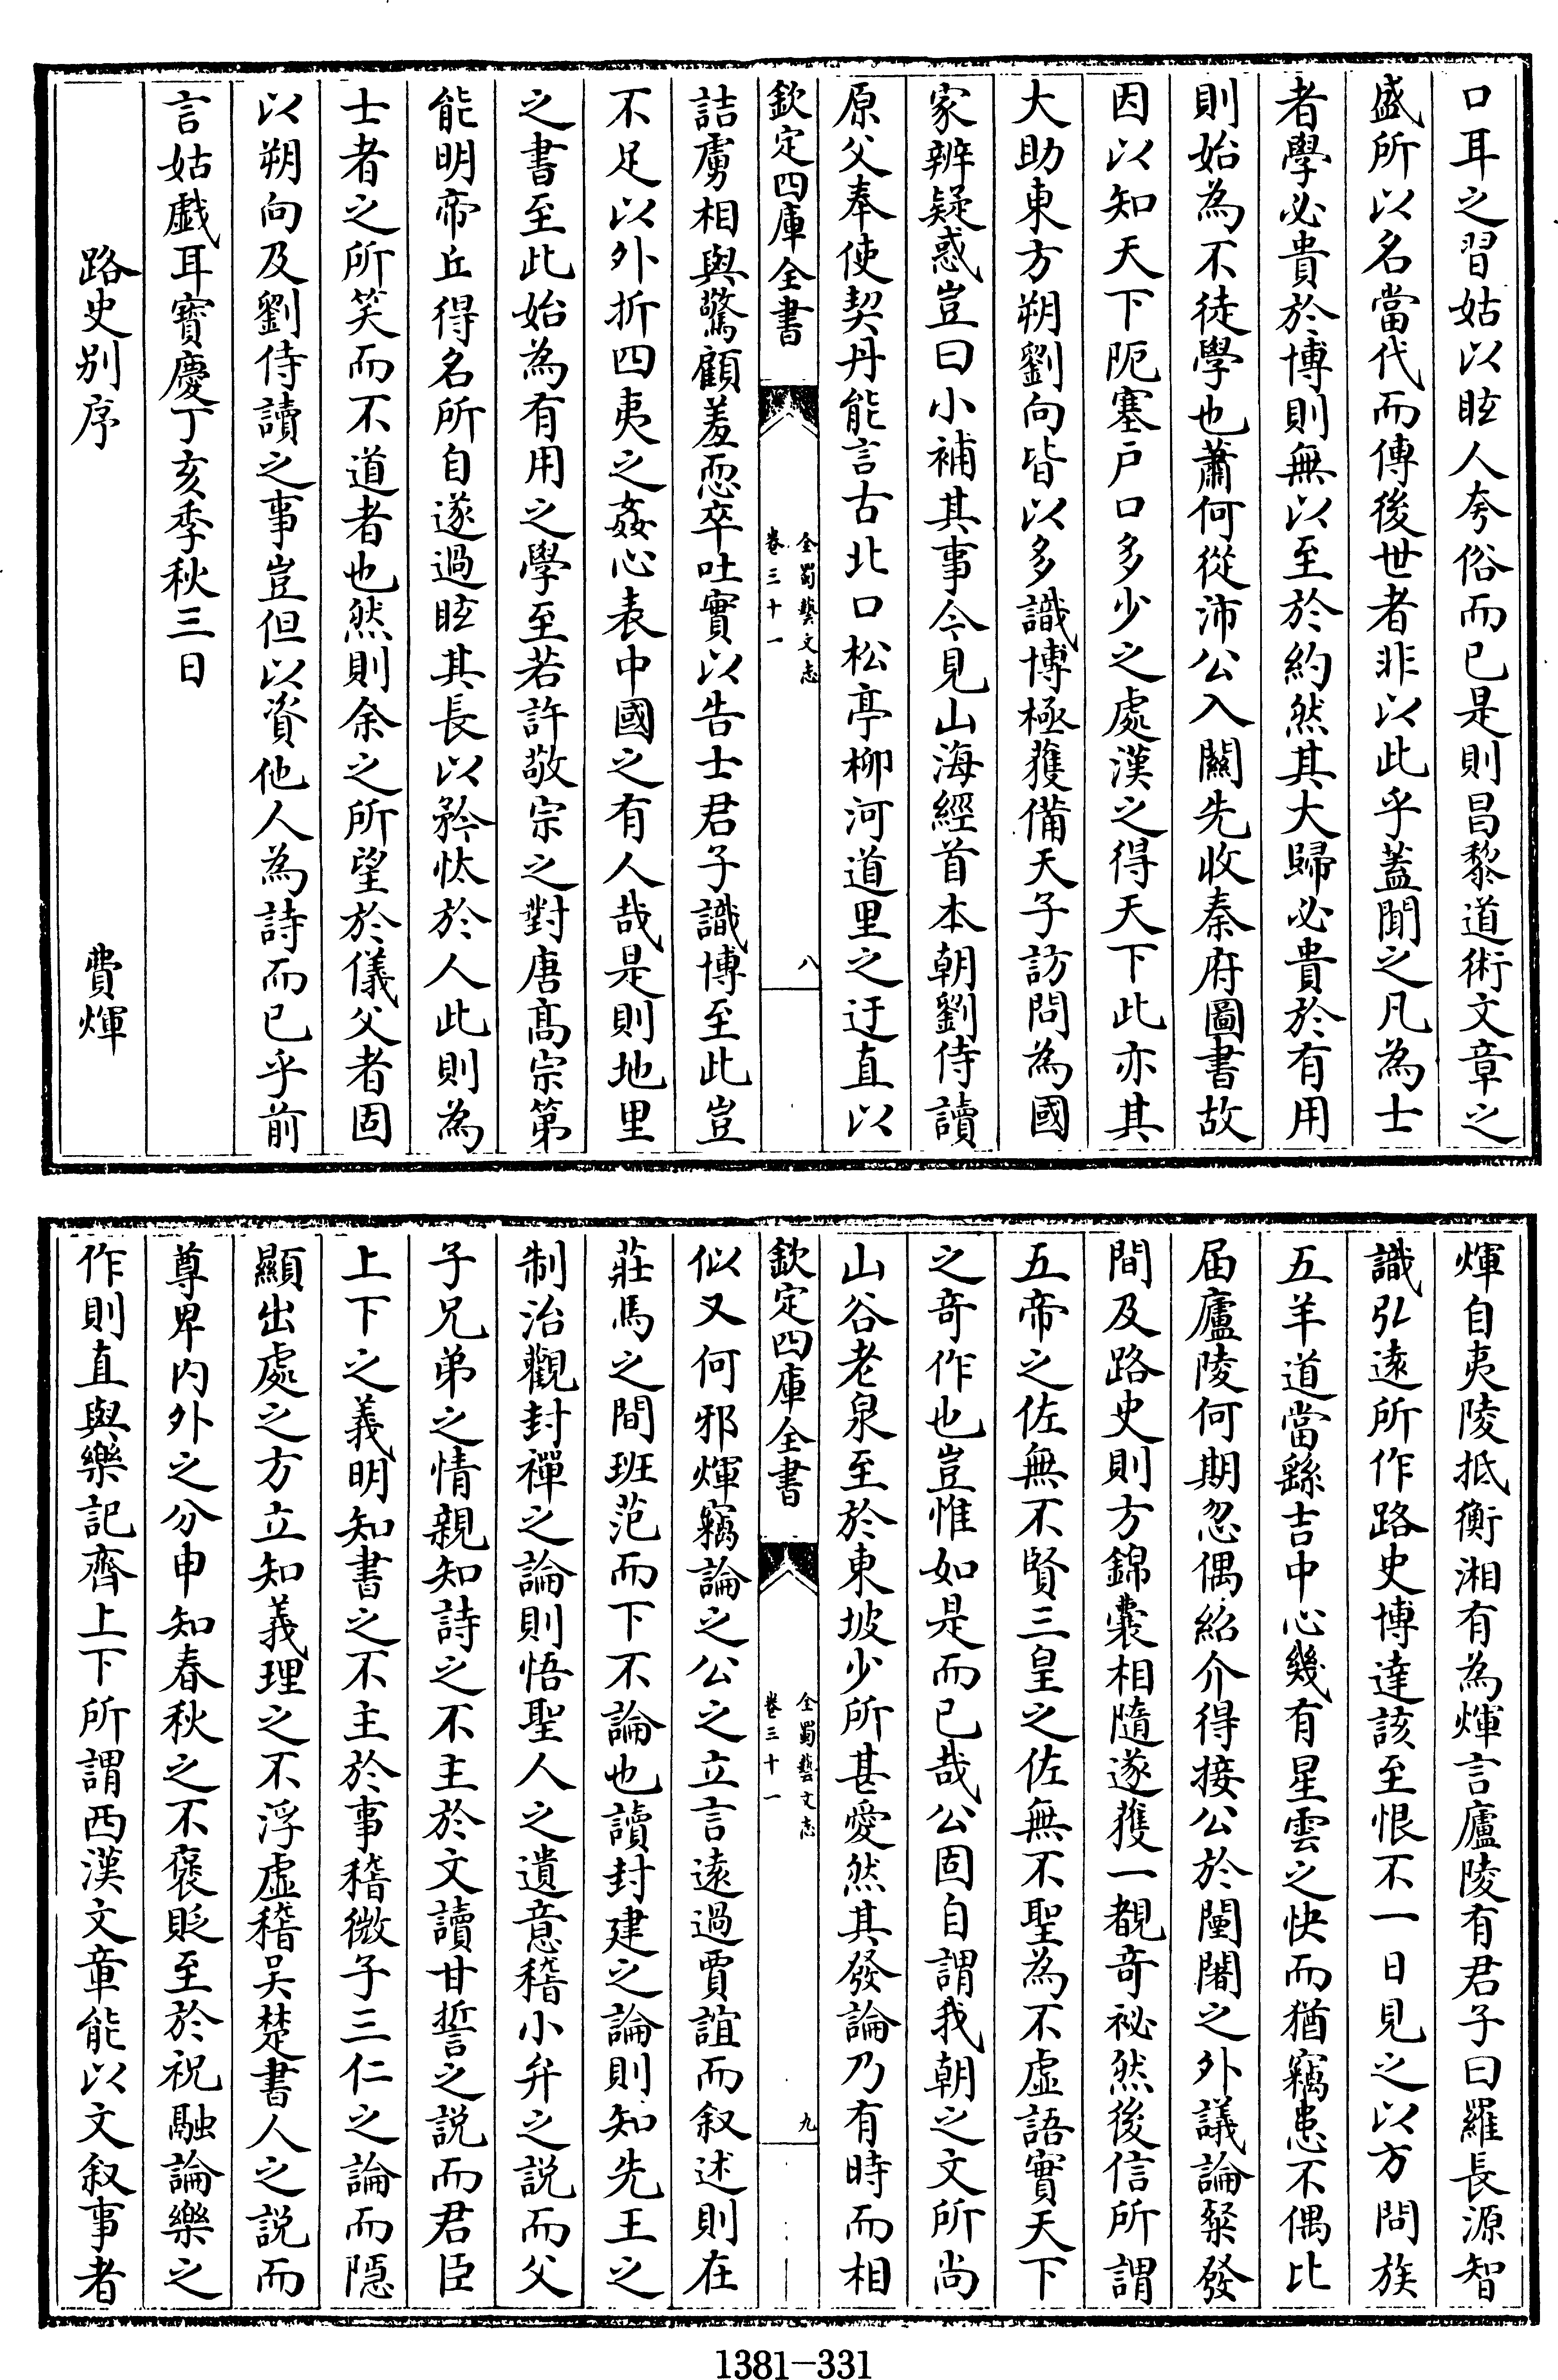 口耳之習姑以眩人夸俗而已是則昌黎道術文章之
盛所以名當代而傳後世者非以此乎蓋聞之凡為士
者學必貴於博則無以至於約然其大歸必貴於有用
則始為不徒學也蕭何從沛公入關先收秦府圖書故
因以知天下阨塞户口多少之處漢之得天下此亦其
大助東方朔劉向皆以多識博極獲備天子訪問為國
家辨疑惑豈曰小補其事今見山海經首本朝劉侍讀
原父奉使契丹能言古北口松亭柳河道里之迂直以
欽定四庫全書
全蜀藝文志
卷三十一
八
詰虜相與驚顧羞恧卒吐實以告士君子識博至此豈
不足以外折四夷之姦心表中國之有人哉是則地里
之書至此始為有用之學至若許敬宗之對唐髙宗第
能明帝丘得名所自遂過眩其長以矜忲於人此則為
士者之所笑而不道者也然則余之所望於儀父者固
以朔向及劉侍讀之事豈但以資他人為詩而已乎前
言姑戲耳寳慶丁亥季秋三日
路史别序
費煇
煇自夷陵抵衡湘有為煇言廬陵有君子曰羅長源智
識弘逺所作路史博達該至恨不一日見之以方問族
五羊道當繇吉中心幾有星雲之快而猶竊患不偶比
届廬陵何期忽偶紹介得接公於闉闍之外議論粲發
間及路史則方錦囊相隨遂獲一覩奇祕然後信所謂
五帝之佐無不賢三皇之佐無不聖為不虚語實天下
之奇作也豈惟如是而已哉公固自謂我朝之文所尚
山谷老泉至於東坡少所甚愛然其發論乃有時而相
欽定四庫全書
全蜀藝文志
卷三十一
九
似又何邪煇竊論之公之立言逺過賈誼而叙述則在
莊馬之間班范而下不論也讀封建之論則知先王之
制治觀封禪之論則悟聖人之遺意稽小弁之説而父
子兄弟之情親知詩之不主於文讀甘誓之説而君臣
上下之義明知書之不主於事稽微子三仁之論而隠
顯出處之方立知義理之不浮虚稽吴楚書人之説而
尊卑内外之分申知春秋之不褒貶至於祝融論樂之
作則直與樂記齊上下所謂西漢文章能以文叙事者
1381—331